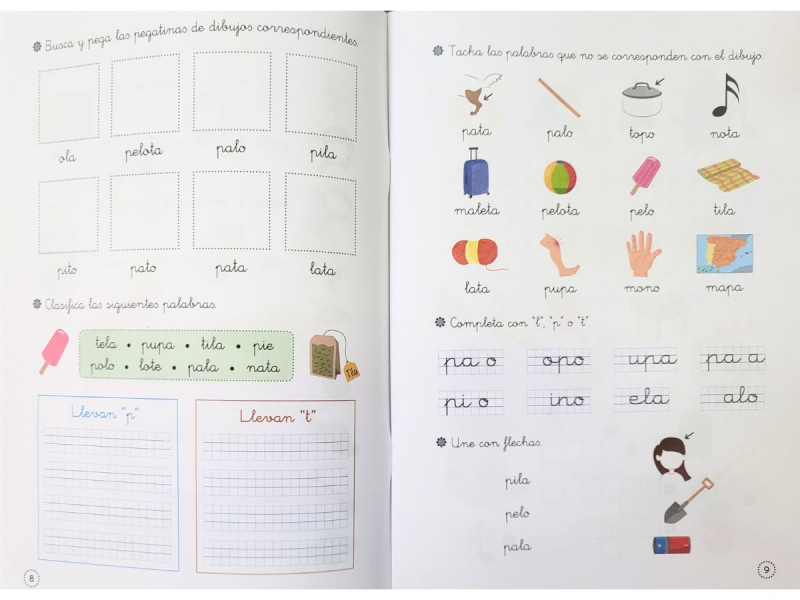 Busca y pega las pegatinas de dibujos correspondientes.
ola pelota palo pila
pito pato pata lata
Clasifica las siguientes palabras.
tela • pupa • tila • pie
polo • lote • pala • nata
Tila
Llevan "p"
Llevan "t"
8
Tacha las palabras que no se corresponden con el dibujo.
pata palo topo nota
maleta pelota pelo tila
lata pupa mono mapa
Completa con "l", "p" o "t".
pa o opo upa pa a
pi o ino ela alo
Une con flechas.
pila
pelo
pala
9